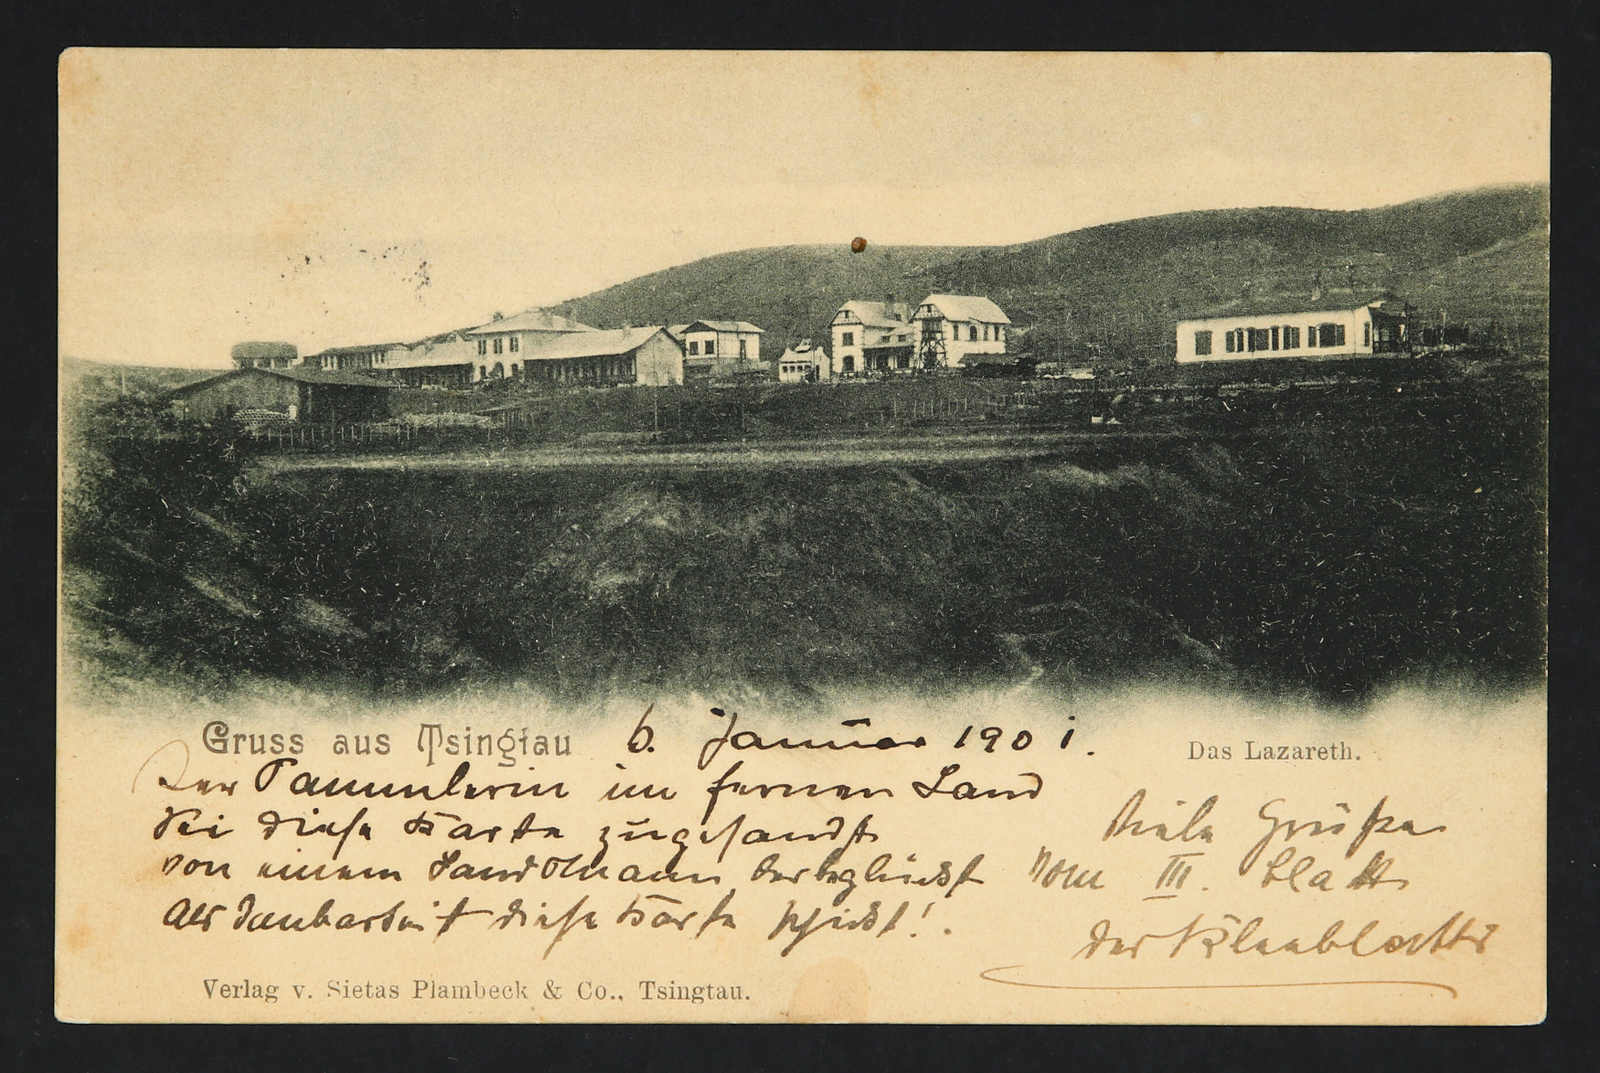 Gruss aus Tsingtau 6. Januar 1901.
Das Lazareth.
Der Sammlerin im fernen Land
Sei diese Karte zugesandt
von einem Landsmann der beglückt
Als Dankbarkeit diese Karte schickt!.
Viele Grüße
vom III. Blatt
des Kleeblatts
Verlag v. Sietas Plambeck & Co., Tsingtau.